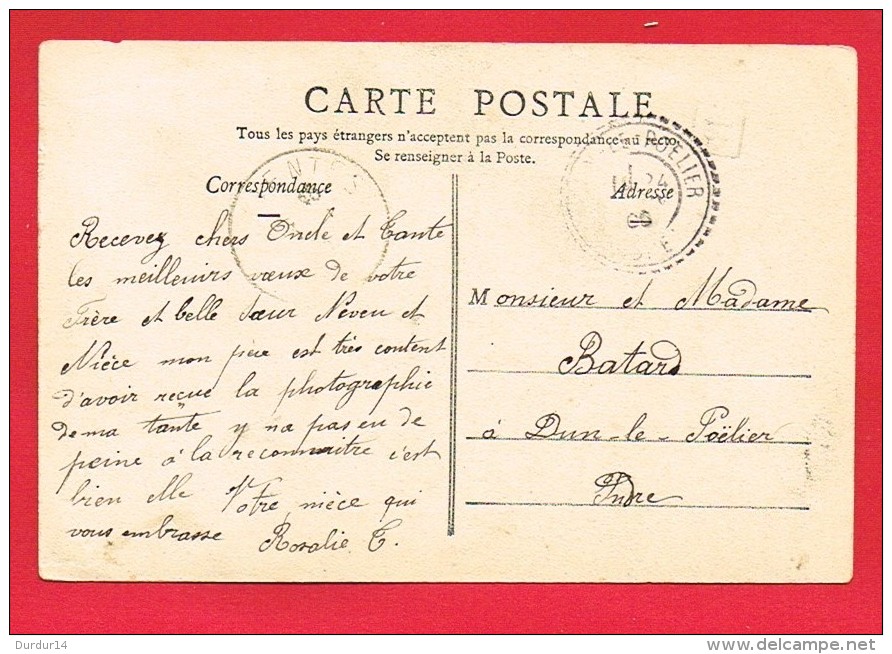 CARTE POSTALE
Tous les pays étrangers n'acceptent pas la correspondance au recto.
Se renseigner à la Poste.
Correspondance
Recevez chers Oncle et Tante
les meilleuirs vœux de votre
Frère et belle Sœur Neveu et
Nièce mon père est très content
d'avoir reçue la photographie
de ma tante y na pas eu de
peine à la reconnaitre c'est
bien elle Votre nièce qui
vous embrasse
Rosalie T.
Adresse
Monsieur et Madame
Batard
à Dun-le-Poëlier
Indre
POELIER
Durdur14
delcampe.net